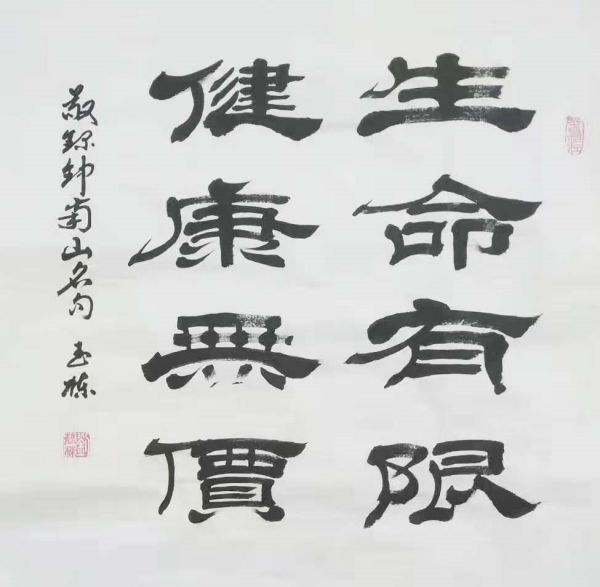 生命有限
健康無價
敬錄鈡南山名句 玉棟